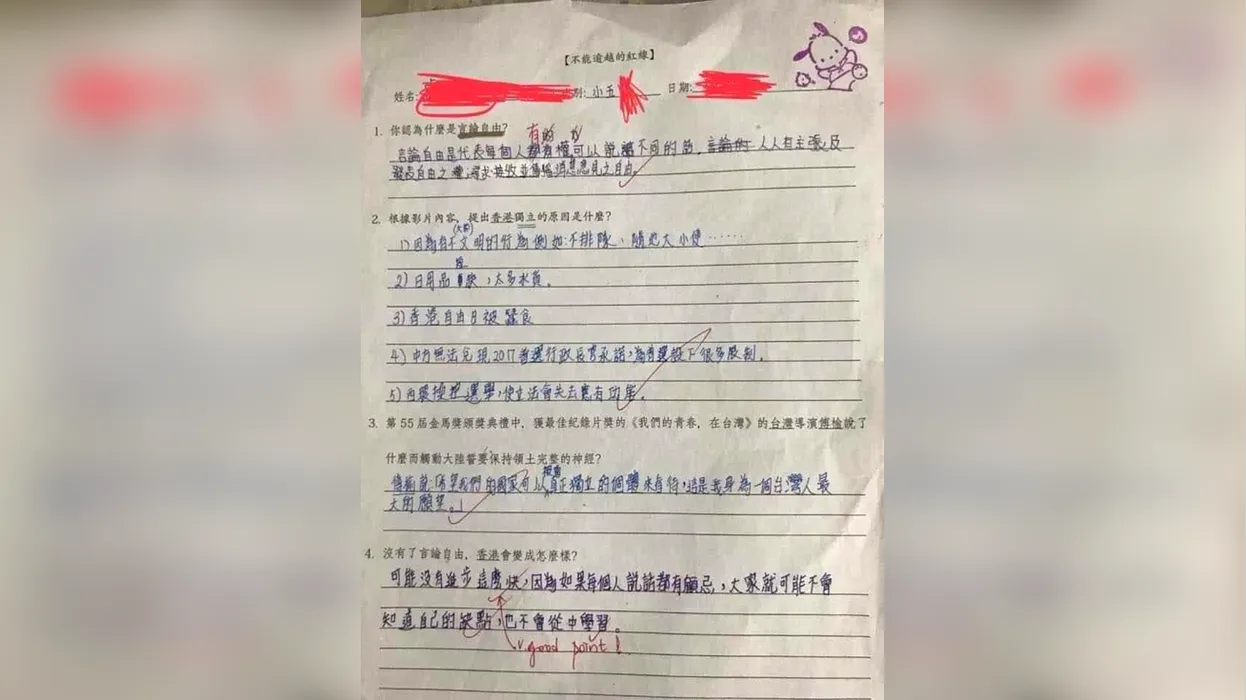 【不能逾越的紅線】
姓名: 別: 小五 日期:
1. 你認為什麼是言論自由?
有的
言論自由是代表每個人都有權可以說不同的話。言論的 人人有主張及
發表自由之權,尋求接收並傳播消息意見之自由。
2. 根據影片內容,提出香港獨立的原因是什麼?
(大陸)
1)因為有不文明的行為例如:不排隊、隨地大小便……
2)日用品 缺,太多水貨。
3)香港自由日被蠶食
4)中方無法兌現2017普選行政長官承諾,為普選設下很多限制。
5)西環操控選舉,使立法會失去應有功能。
3. 第55屆金馬獎頒獎典禮中,獲最佳紀錄片獎的《我們的青春,在台灣》的台灣導演傅榆說了
什麼而觸動大陸誓要保持領土完整的神經?
被當
傅榆說:希望我們的國家可以真正獨立的個體來看待,這是我身為一個台灣人最
大的願望。
4. 沒有了言論自由,香港會變成怎麼樣?
可能沒有進步這麼快,因為如果每個人說話都有顧忌,大眾就可能不會
知道自己的缺點,也不會從中學習。
v.good point!